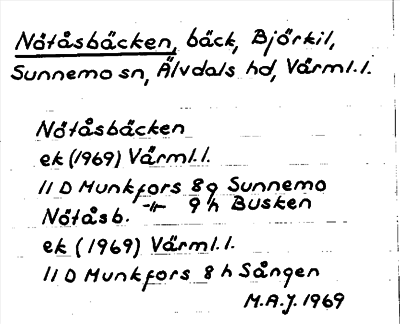 Nötåsbäcken, bäck, Björkil,
Sunnemo sn, Älvdals hd, Värml. l.
Nötåsbäcken
ek (1969) Värml. l.
11 D Munkfors 8g Sunnemo
-"- 9h Busken
Nötåsb.
ek (1969) Värml. l.
11 D Munkfors 8h Sången
M.A.J. 1969